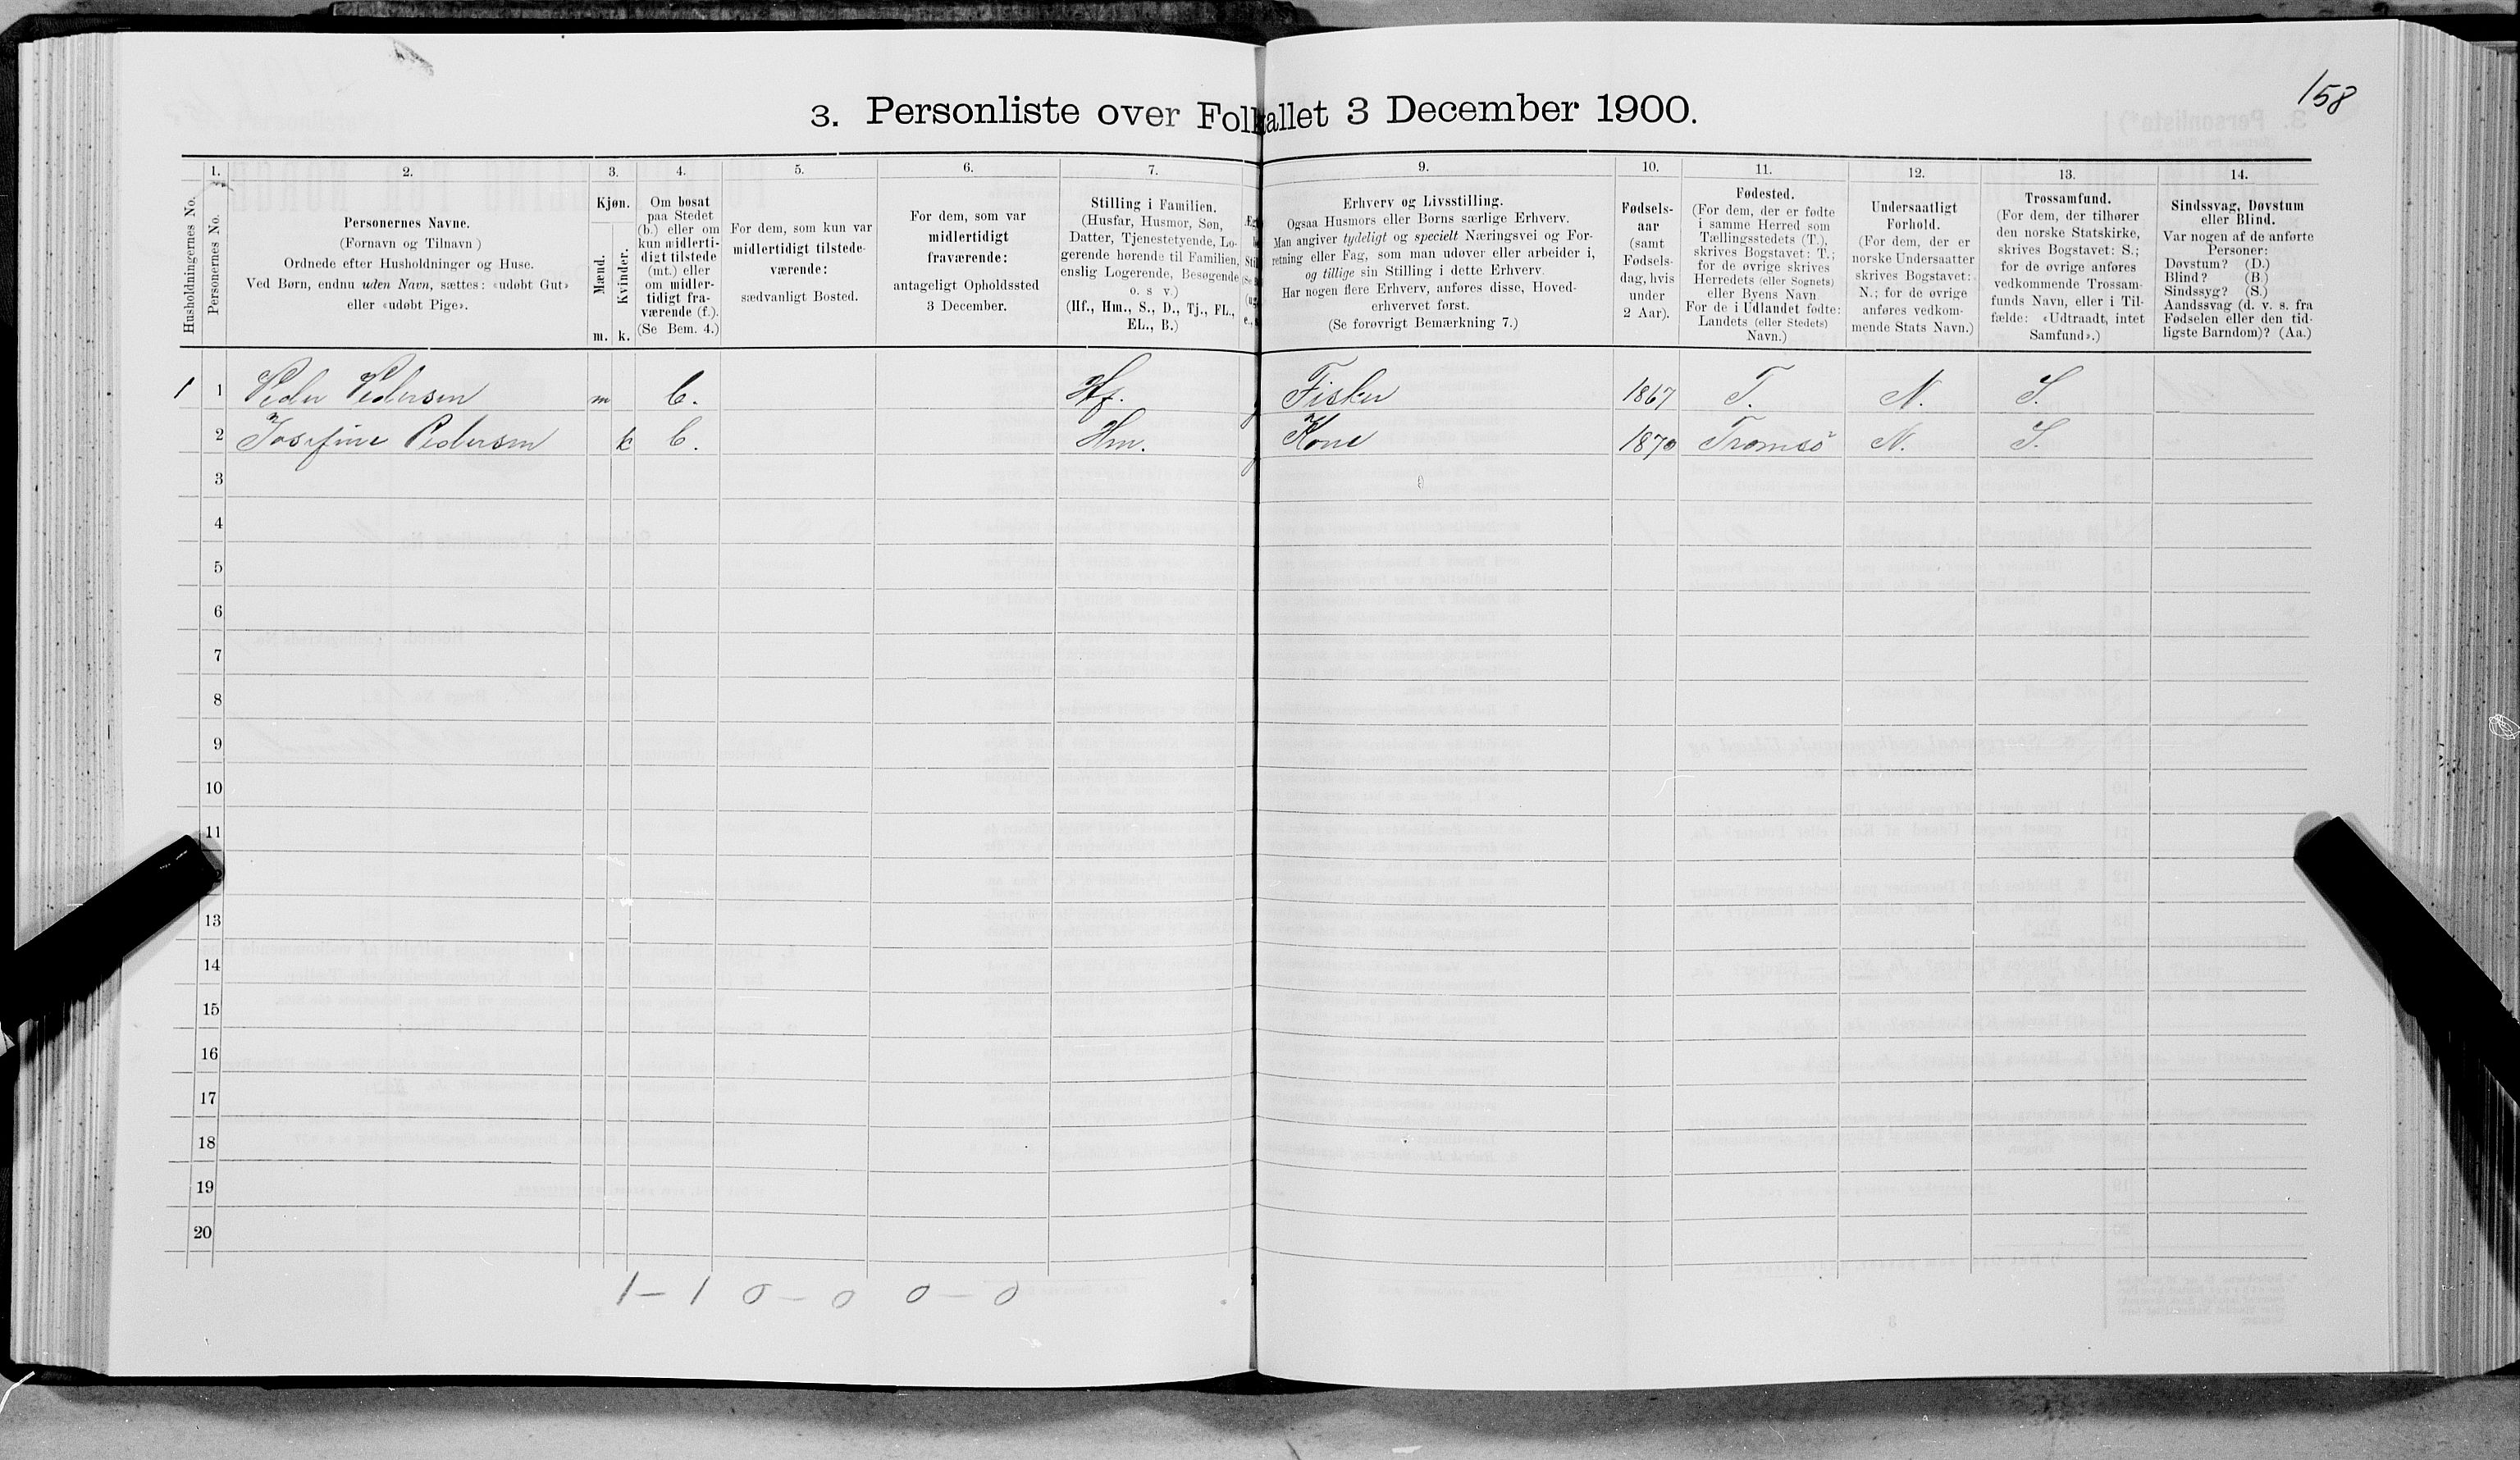 158
3. Personliste over Folketallet 3 December 1900.
1. 2. 3. 4. 5. 6. 7. 9. 10. 11. 12. 13. 14.
Husholdningernes No.
Personernes No.
Personernes Navne.
(Fornavn og Tilnavn)
Ordnede efter Husholdninger og Huse.
Ved Børn, endnu uden Navn, sættes: «udøbt Gut»
eller «udøbt Pige».
Kjøn.
Mænd.
Kvinder.
m. k.
Om bosat
paa Stedet
(b.) eller om
kun midlerti-
digt tilstede
(mt.) eller
om midler-
tidigt fra-
værende (f.).
(Se Bem. 4.)
For dem, som kun var
midlertidigt tilstede-
værende:
sædvanligt Bosted.
For dem, som var
midlertidigt
fraværende:
antageligt Opholdssted
3 December.
Stilling i Familien.
(Husfar, Husmor, Søn,
Datter, Tjenestetyende, Lo-
gerende hørende til Familien,
enslig Logerende, Besøgende
o. s v.)
(Hf., Hm., S., D., Tj., FL.,
EL., B.)
Erhverv og Livsstilling.
Ogsaa Husmors eller Børns særlige Erhverv.
Man angiver tydeligt og specielt Næringsvei og For-
retning eller Fag, som man udøver eller arbeider i,
og tillige sin Stilling i dette Erhverv.
Har nogen flere Erhverv, anføres disse, Hoved-
erhvervet først.
(Se forøvrigt Bemærkning 7.)
Fødsels-
aar
(samt
Fødsels-
dag, hvis
under
2 Aar).
Fødested.
(For dem, der er fødte
i samme Herred som
Tællingsstedets (T.),
skrives Bogstavet: T.;
for de øvrige skrives
Herredets (eller Sognets)
eller Byens Navn
For de i Udlandet fødte:
Landets (eller Stedets)
Navn.)
Undersaatligt
Forhold.
(For dem, der er
norske Undersaatter
skrives Bogstavet:
N.; for de øvrige
anføres vedkom-
mende Stats Navn.)
Trossamfund.
(For dem, der tilhører
den norske Statskirke,
skrives Bogstavet: S.;
for de øvrige anføres
vedkommende Trossam-
funds Navn, eller i Til-
fælde: «Udtraadt, intet
Samfund».)
Sindssvag, Døvstum
eller Blind.
Var nogen af de anførte
Personer:
Døvstum? (D.)
Blind? (B.)
Sindssyg? (S.)
Aandssvag (d. v. s. fra
Fødselen eller den tid-
ligste Barndom)? (Aa.)
1 1 Peder Pedersen m b. Hf. g Fisker 1867 T. N. S.
2 Josefine Pedersen k b. Hm. g Kone 1870 Tromsö N. S.
3
4
5
6
7
8
9
10
11
2
13
14
15
16
17
18
19
20
1 – 1 0 – 0 0 – 0